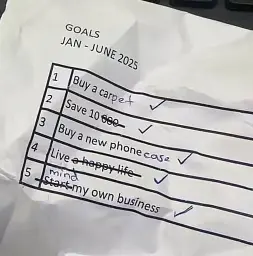 GOALS
JAN - JUNE 2025
1 Buy a carpet ✓
2 Save 10 000 ✓
3 Buy a new phone case ✓
4 Live a happy life ✓
mind
5 Start my own business ✓